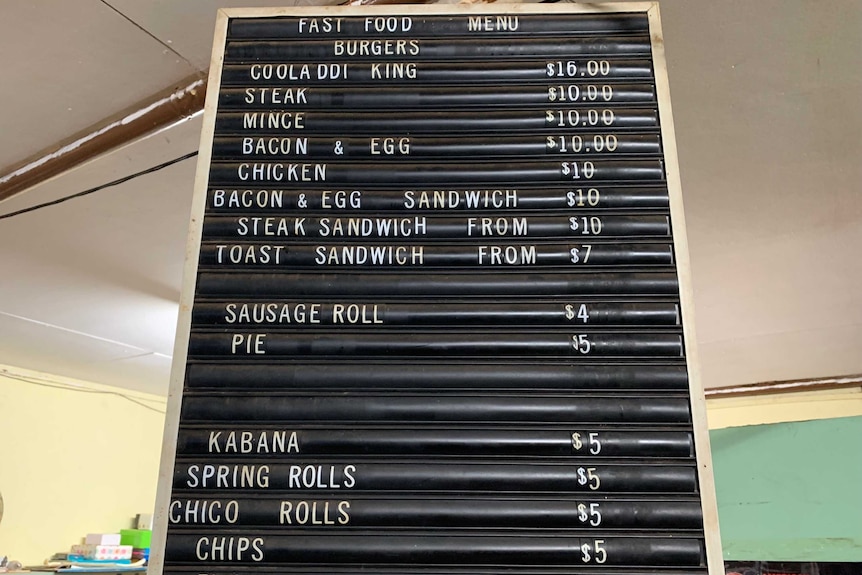 FAST FOOD MENU
BURGERS
COOLADDI KING $16.00
STEAK $10.00
MINCE $10.00
BACON & EGG $10.00
CHICKEN $10
BACON & EGG SANDWICH $10
STEAK SANDWICH FROM $10
TOAST SANDWICH FROM $7
SAUSAGE ROLL $4
PIE $5
KABANA $5
SPRING ROLLS $5
CHICO ROLLS $5
CHIPS $5